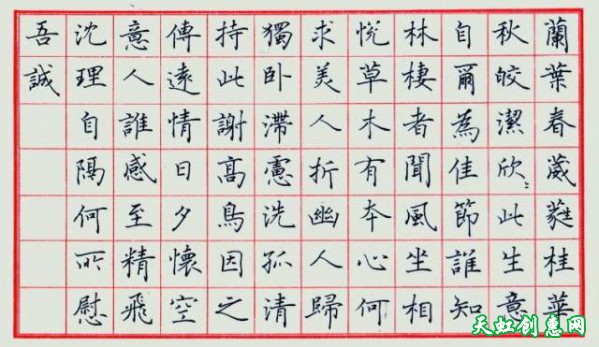 蘭葉春葳蕤桂華
秋皎潔欣〻此生意
自爾為佳節誰知
林棲者聞風坐相
悅草木有本心何
求美人折幽人歸
獨卧滯慮洗孤清
持此謝高鳥因之
傳遠情日夕懷空
意人誰感至精飛
沈理自隔何所慰
吾誠
天虹创意网